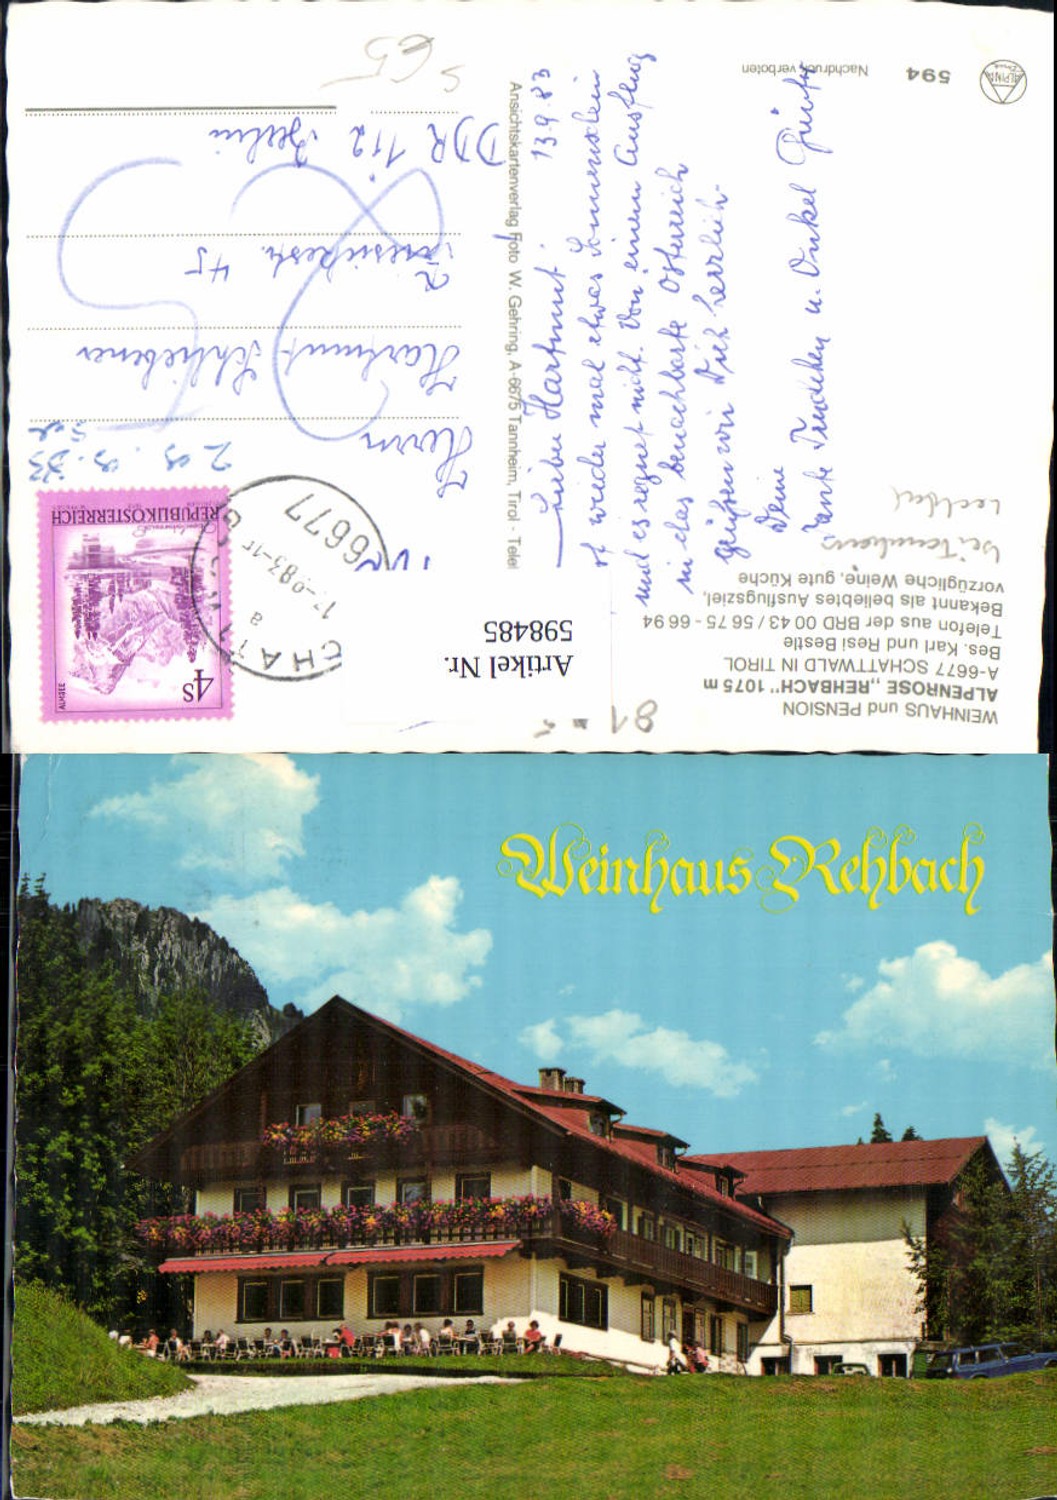 WEINHAUS und PENSION
ALPENROSE „REHBACH" 1075 m
A-6677 SCHATTWALD IN TIROL
Bes. Karl und Resi Bestle
Telefon aus der BRD 00 43 / 56 75 - 66 94
Bekannt als beliebtes Ausflugsziel,
vorzügliche Weine, gute Küche
bei Tannheim
Artikel Nr.
598485
81
4S
ALMSEE
REPUBLIK ÖSTERREICH
6677
a
Ansichtskartenverlag Foto W. Gehring, A-6675 Tannheim, Tirol · Tele
13.9.83
Lieber Hartmut.
wieder mal etwas Sonnenschein
und es regnet nicht. Von einem Ausflug
in das benachbarte Österreich
grüßen wir Dich herzlich-
Deine
Tante u. Onkel Günter
Herrn
Hartmut
45
DDR 112 Berlin
594
Nachdruck verboten
ALPINA
Druck
Weinhaus Rehbach